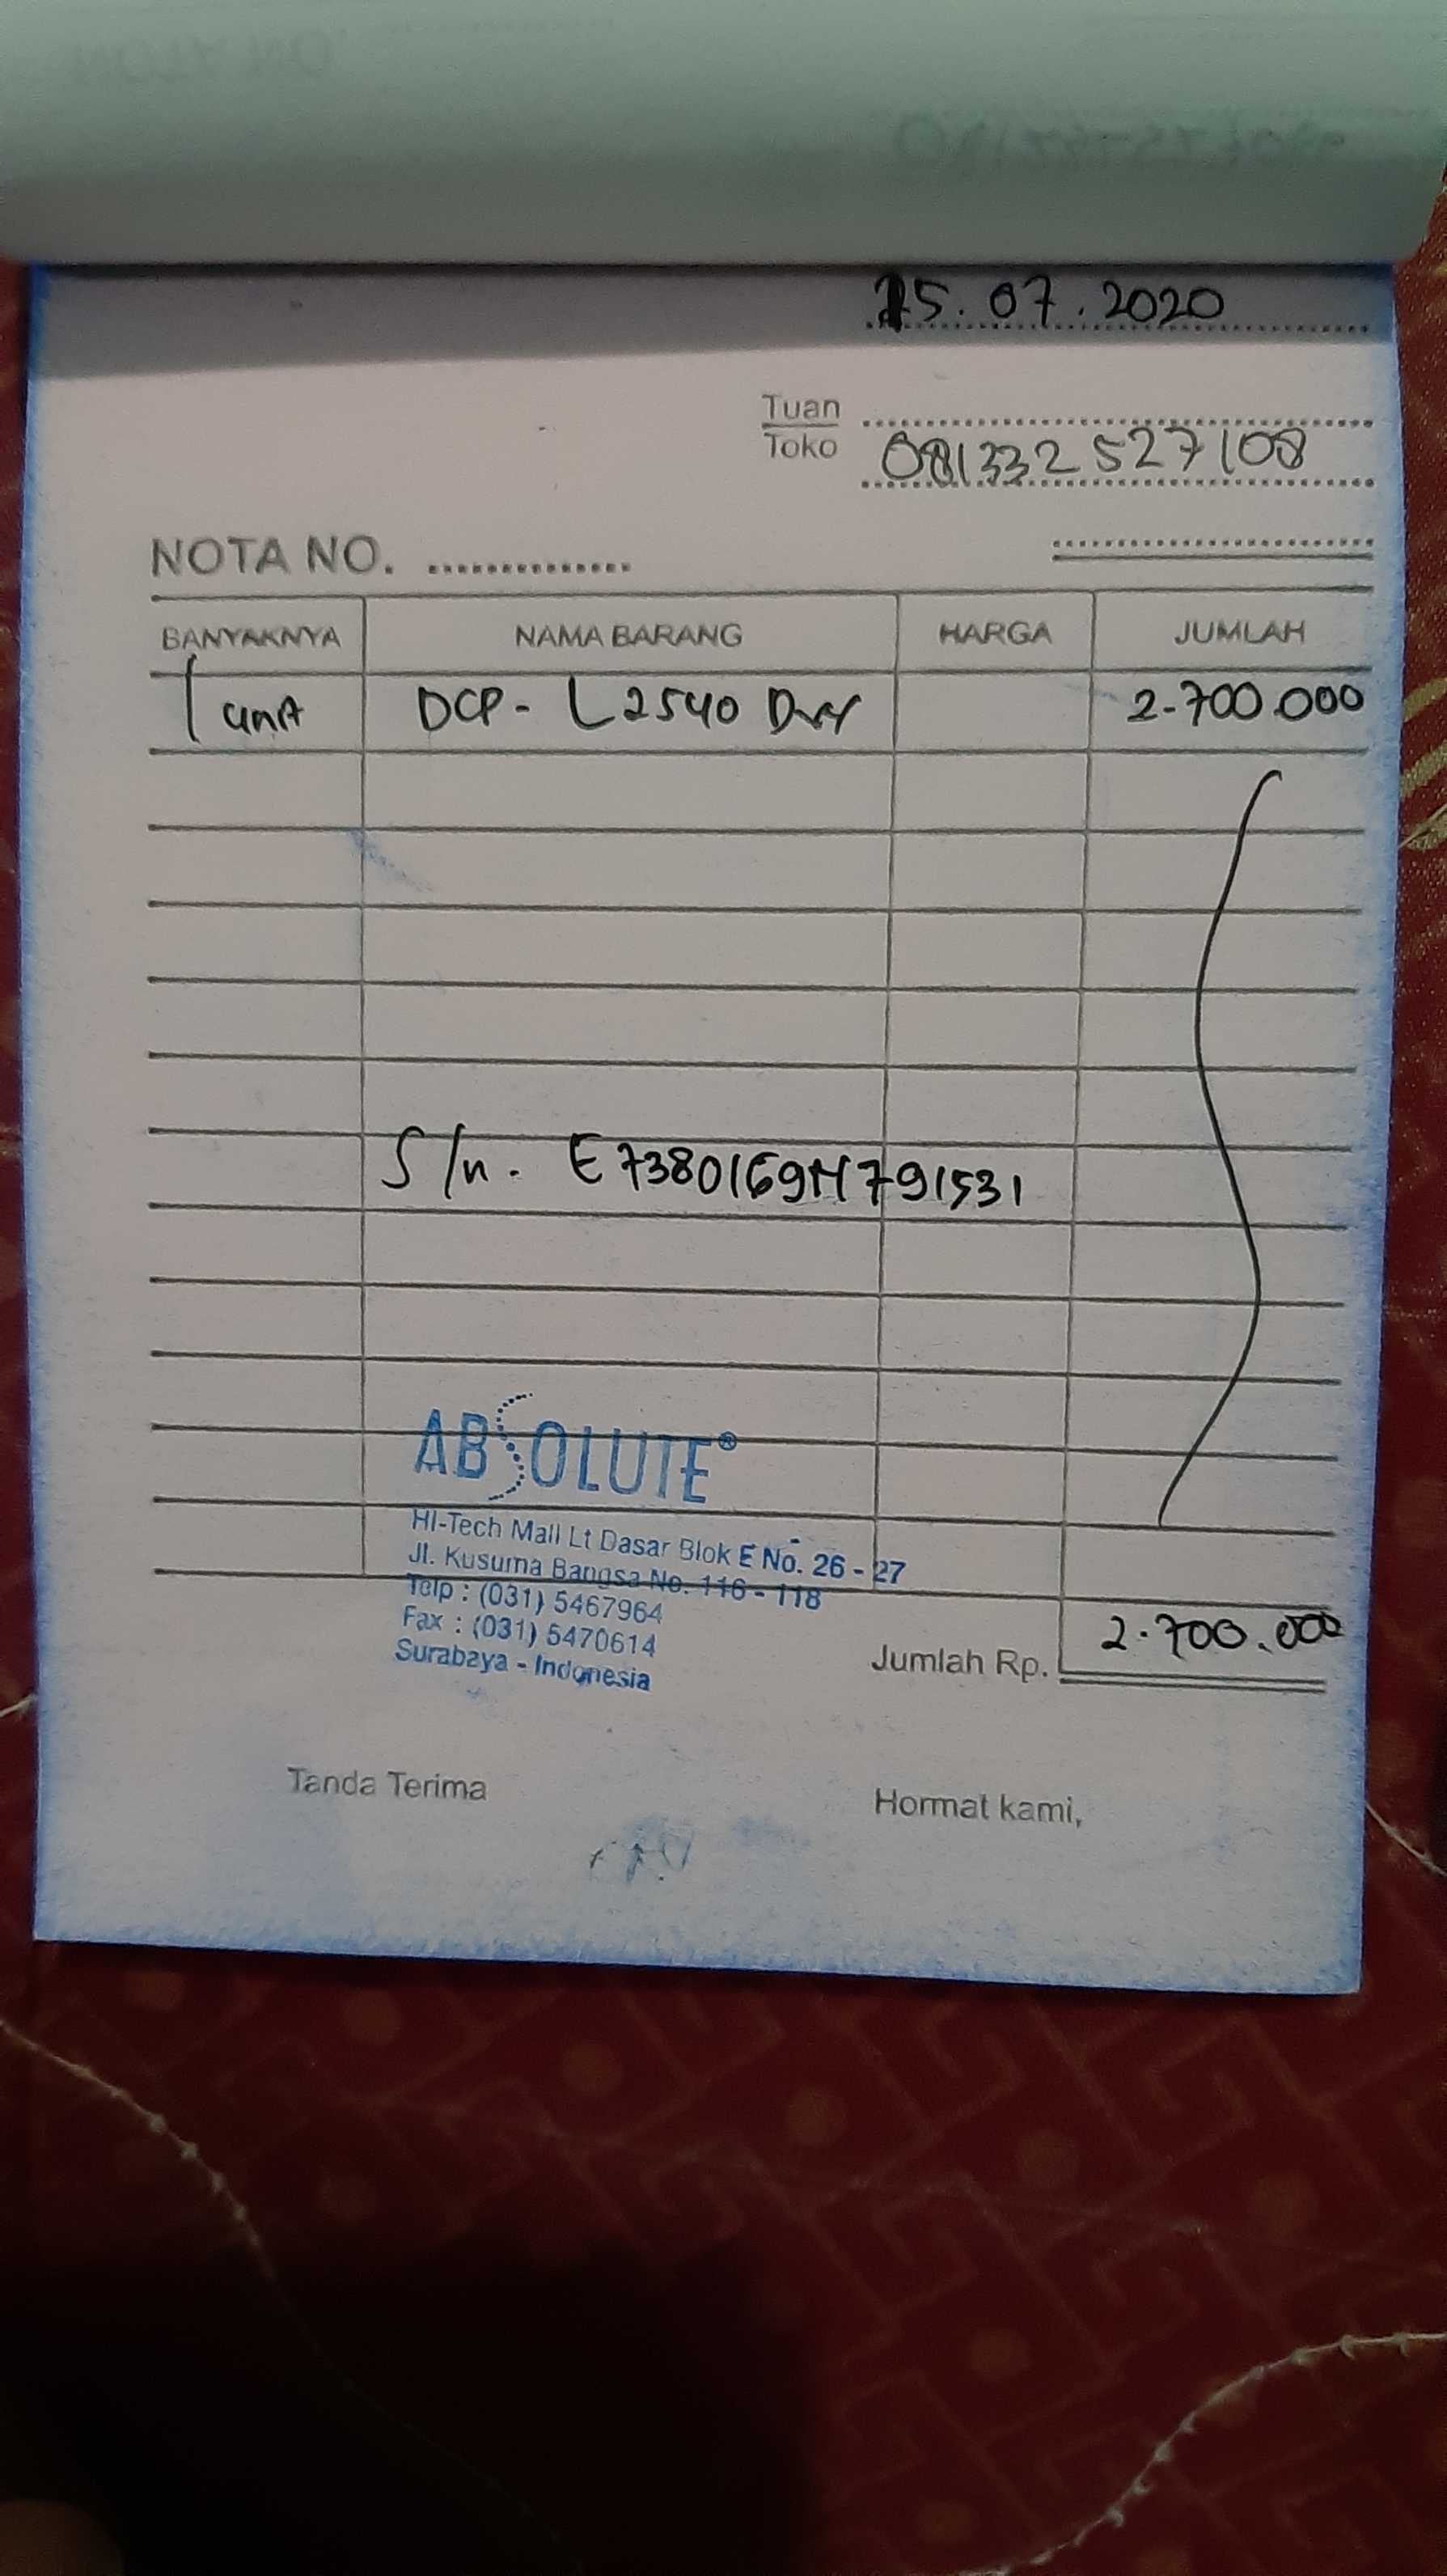 15.07.2020
Tuan
Toko 081332527108
NOTA NO. ..............
BANYAKNYA NAMA BARANG HARGA JUMLAH
1 unit DCP - L2540 DW 2.700.000
S/n. E7380169H791531
ABSOLUTE®
HI-Tech Mall Lt Dasar Blok E No. 26 - 27
Jl. Kusuma Bangsa No. 116 - 118
Telp : (031) 5467964
Fax : (031) 5470614
Surabaya - Indonesia
Jumlah Rp. 2.700.000
Tanda Terima Hormat kami,